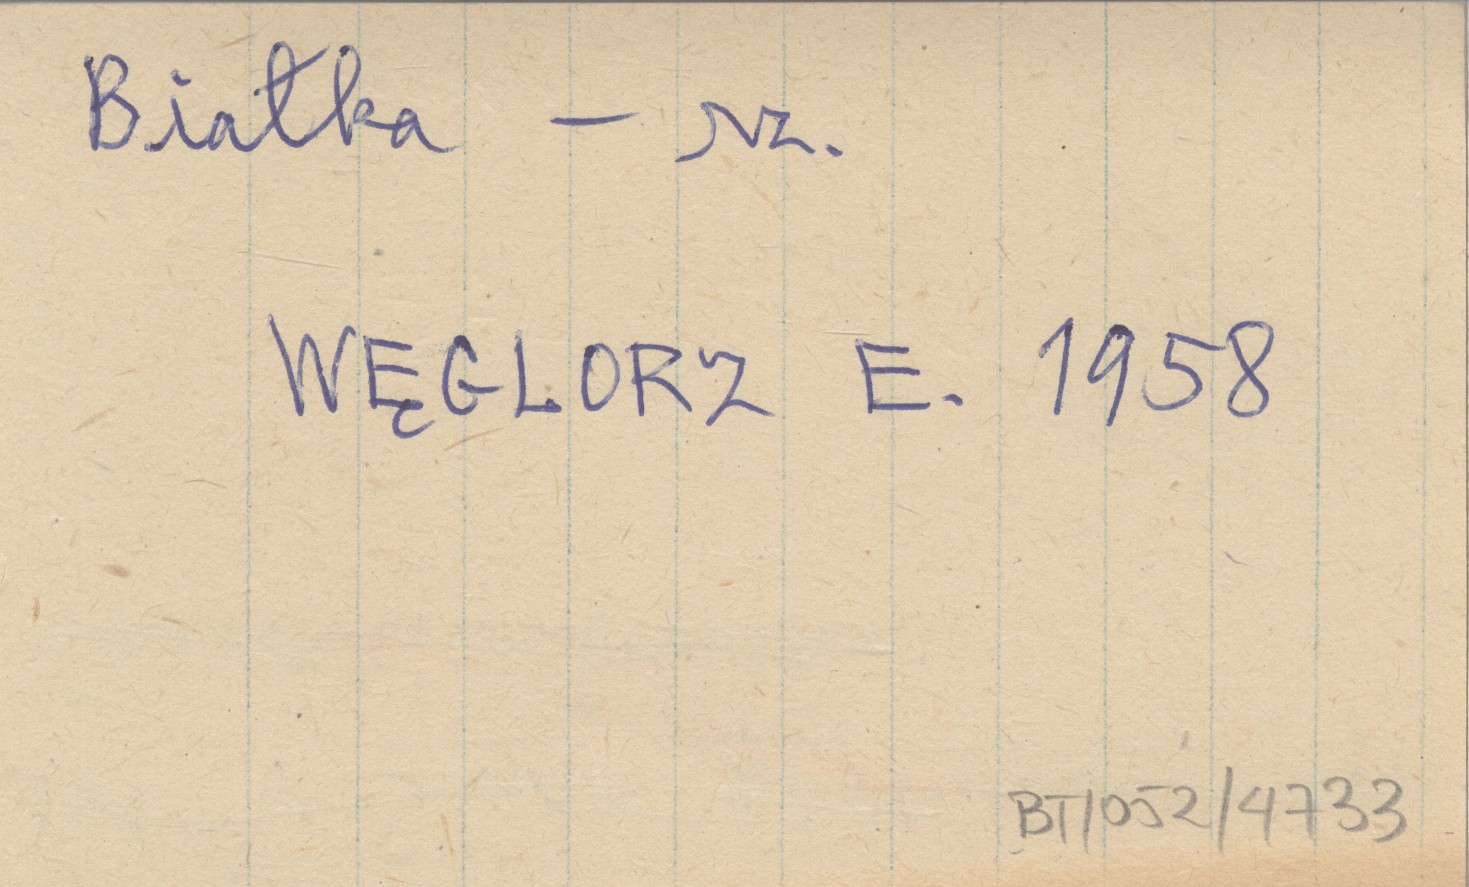 Białka – rz.
WĘGLORZ E. 1958
BT/052/4733